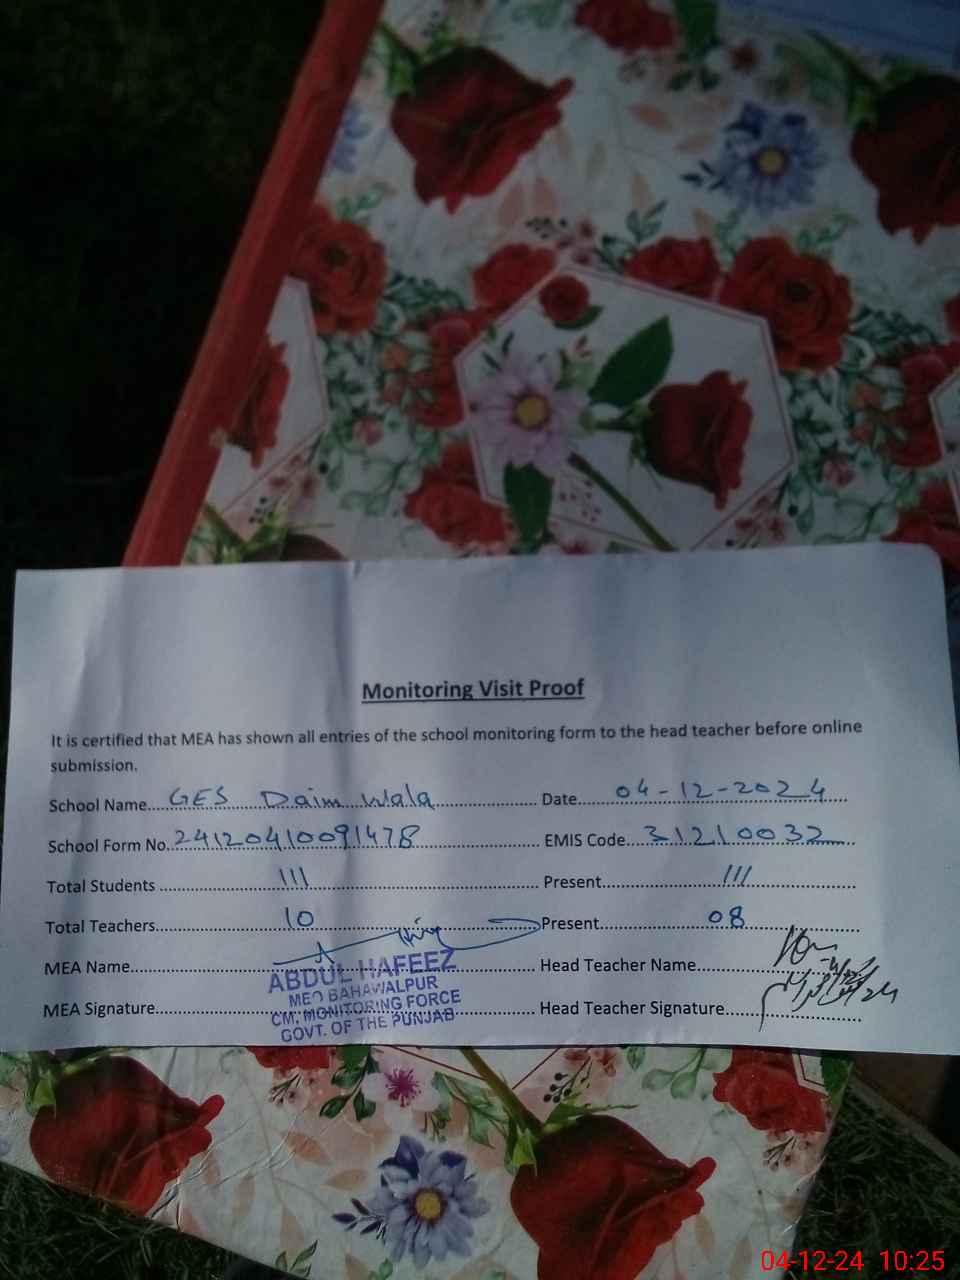 Monitoring Visit Proof
It is certified that MEA has shown all entries of the school monitoring form to the head teacher before online
submission.
School Name GES Daim Wala Date 04-12-2024
School Form No. 24120410091478 EMIS Code 31210032
Total Students 111 Present 111
Total Teachers 10 Present 08
MEA Name Head Teacher Name
ABDUL HAFEEZ
MEO BAHAWALPUR
MEA Signature Head Teacher Signature
CM, MONITORING FORCE
GOVT. OF THE PUNJAB
04-12-24 10:25